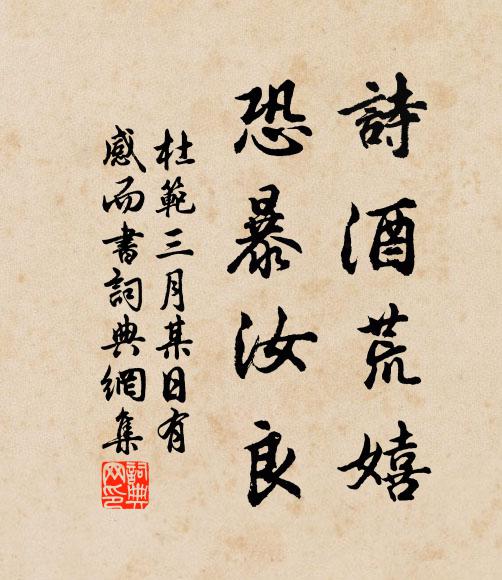 詩酒荒嬉
恐暴汝良
杜範三月某日有
感而書詞典網集
詞典網印